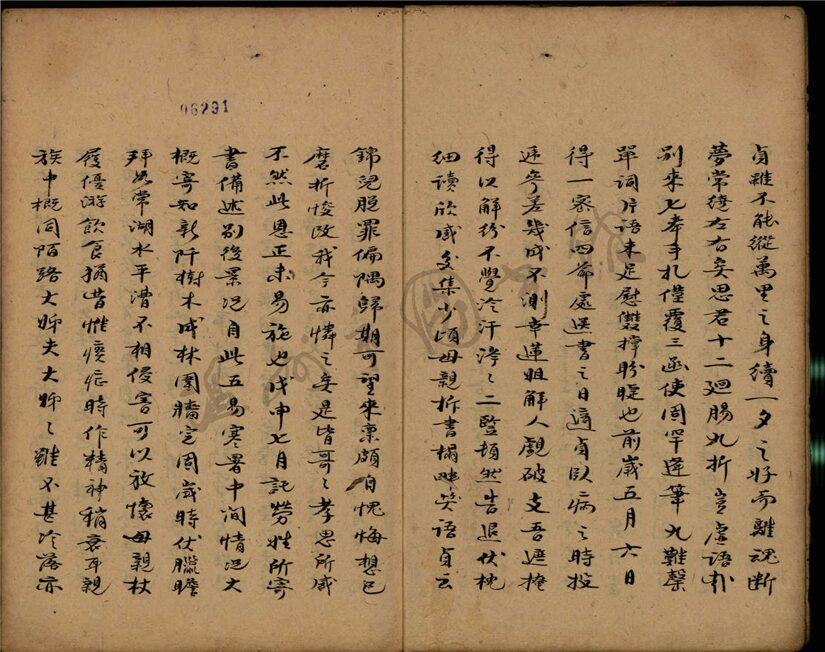 06291
貞雖不能縱萬里之身續一夕之好而離魂斷
夢常繞左右矣思君十二廻腸九折豈虛語
別來七奉手札僅覆三函使罕逢筆難罄
單詞片語未足慰雙盼睫也前歲五月六日
得一密信四帋處遞書之日適貞臥病之時投
遞參差幾成不測幸蓮姐解人覷破支吾遮掩
得以解紛不覺冷汗涔々二豎頓然告退伏枕
細讀欣感交集少頃母親拆書咲語貞云
錦兒脫罪偏隅歸期可望來稟頗自愧悔想已
磨折悛改我今亦憐之矣是皆哥々孝思所感
不然此恩正未易施也戊申七月託勞姓所寄
書備述別後景況自此五易寒暑中间情況大
概寄知新阡樹木成林圍牆完固歲時伏臘瞻
拜如常湖水平漕不相侵害可以放懷母親杖
履優游飲食猶昔惟痰症時作精神稍衰耳親
族中概同陌路大姊夫大姊々雖不甚冷落亦